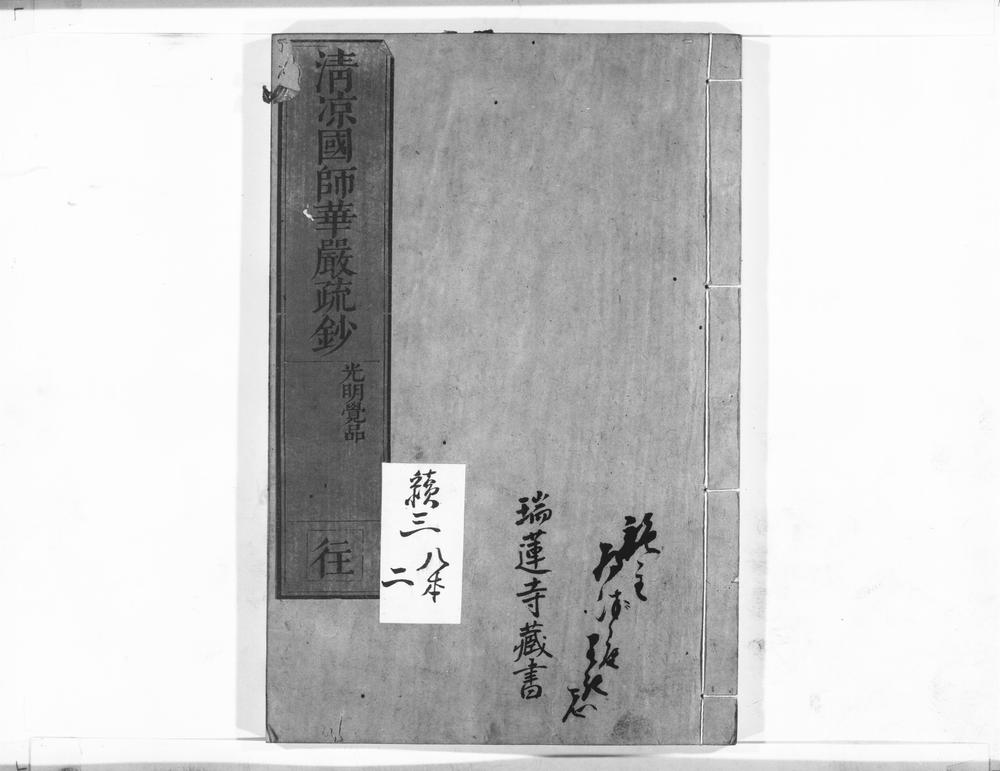 清凉國師華嚴疏鈔
光明覺品
往
續三
八本
二
瑞蓮寺藏書